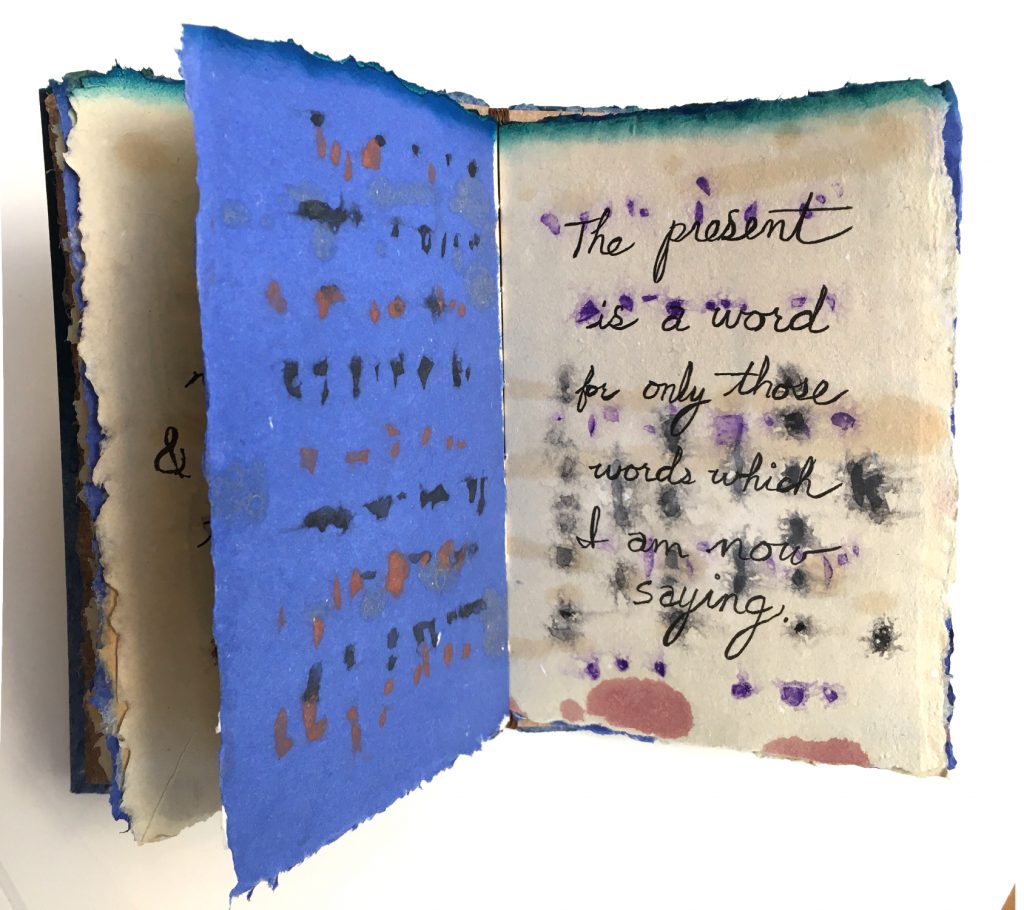 &
The present
is a word
for only those
words which
I am now
saying.